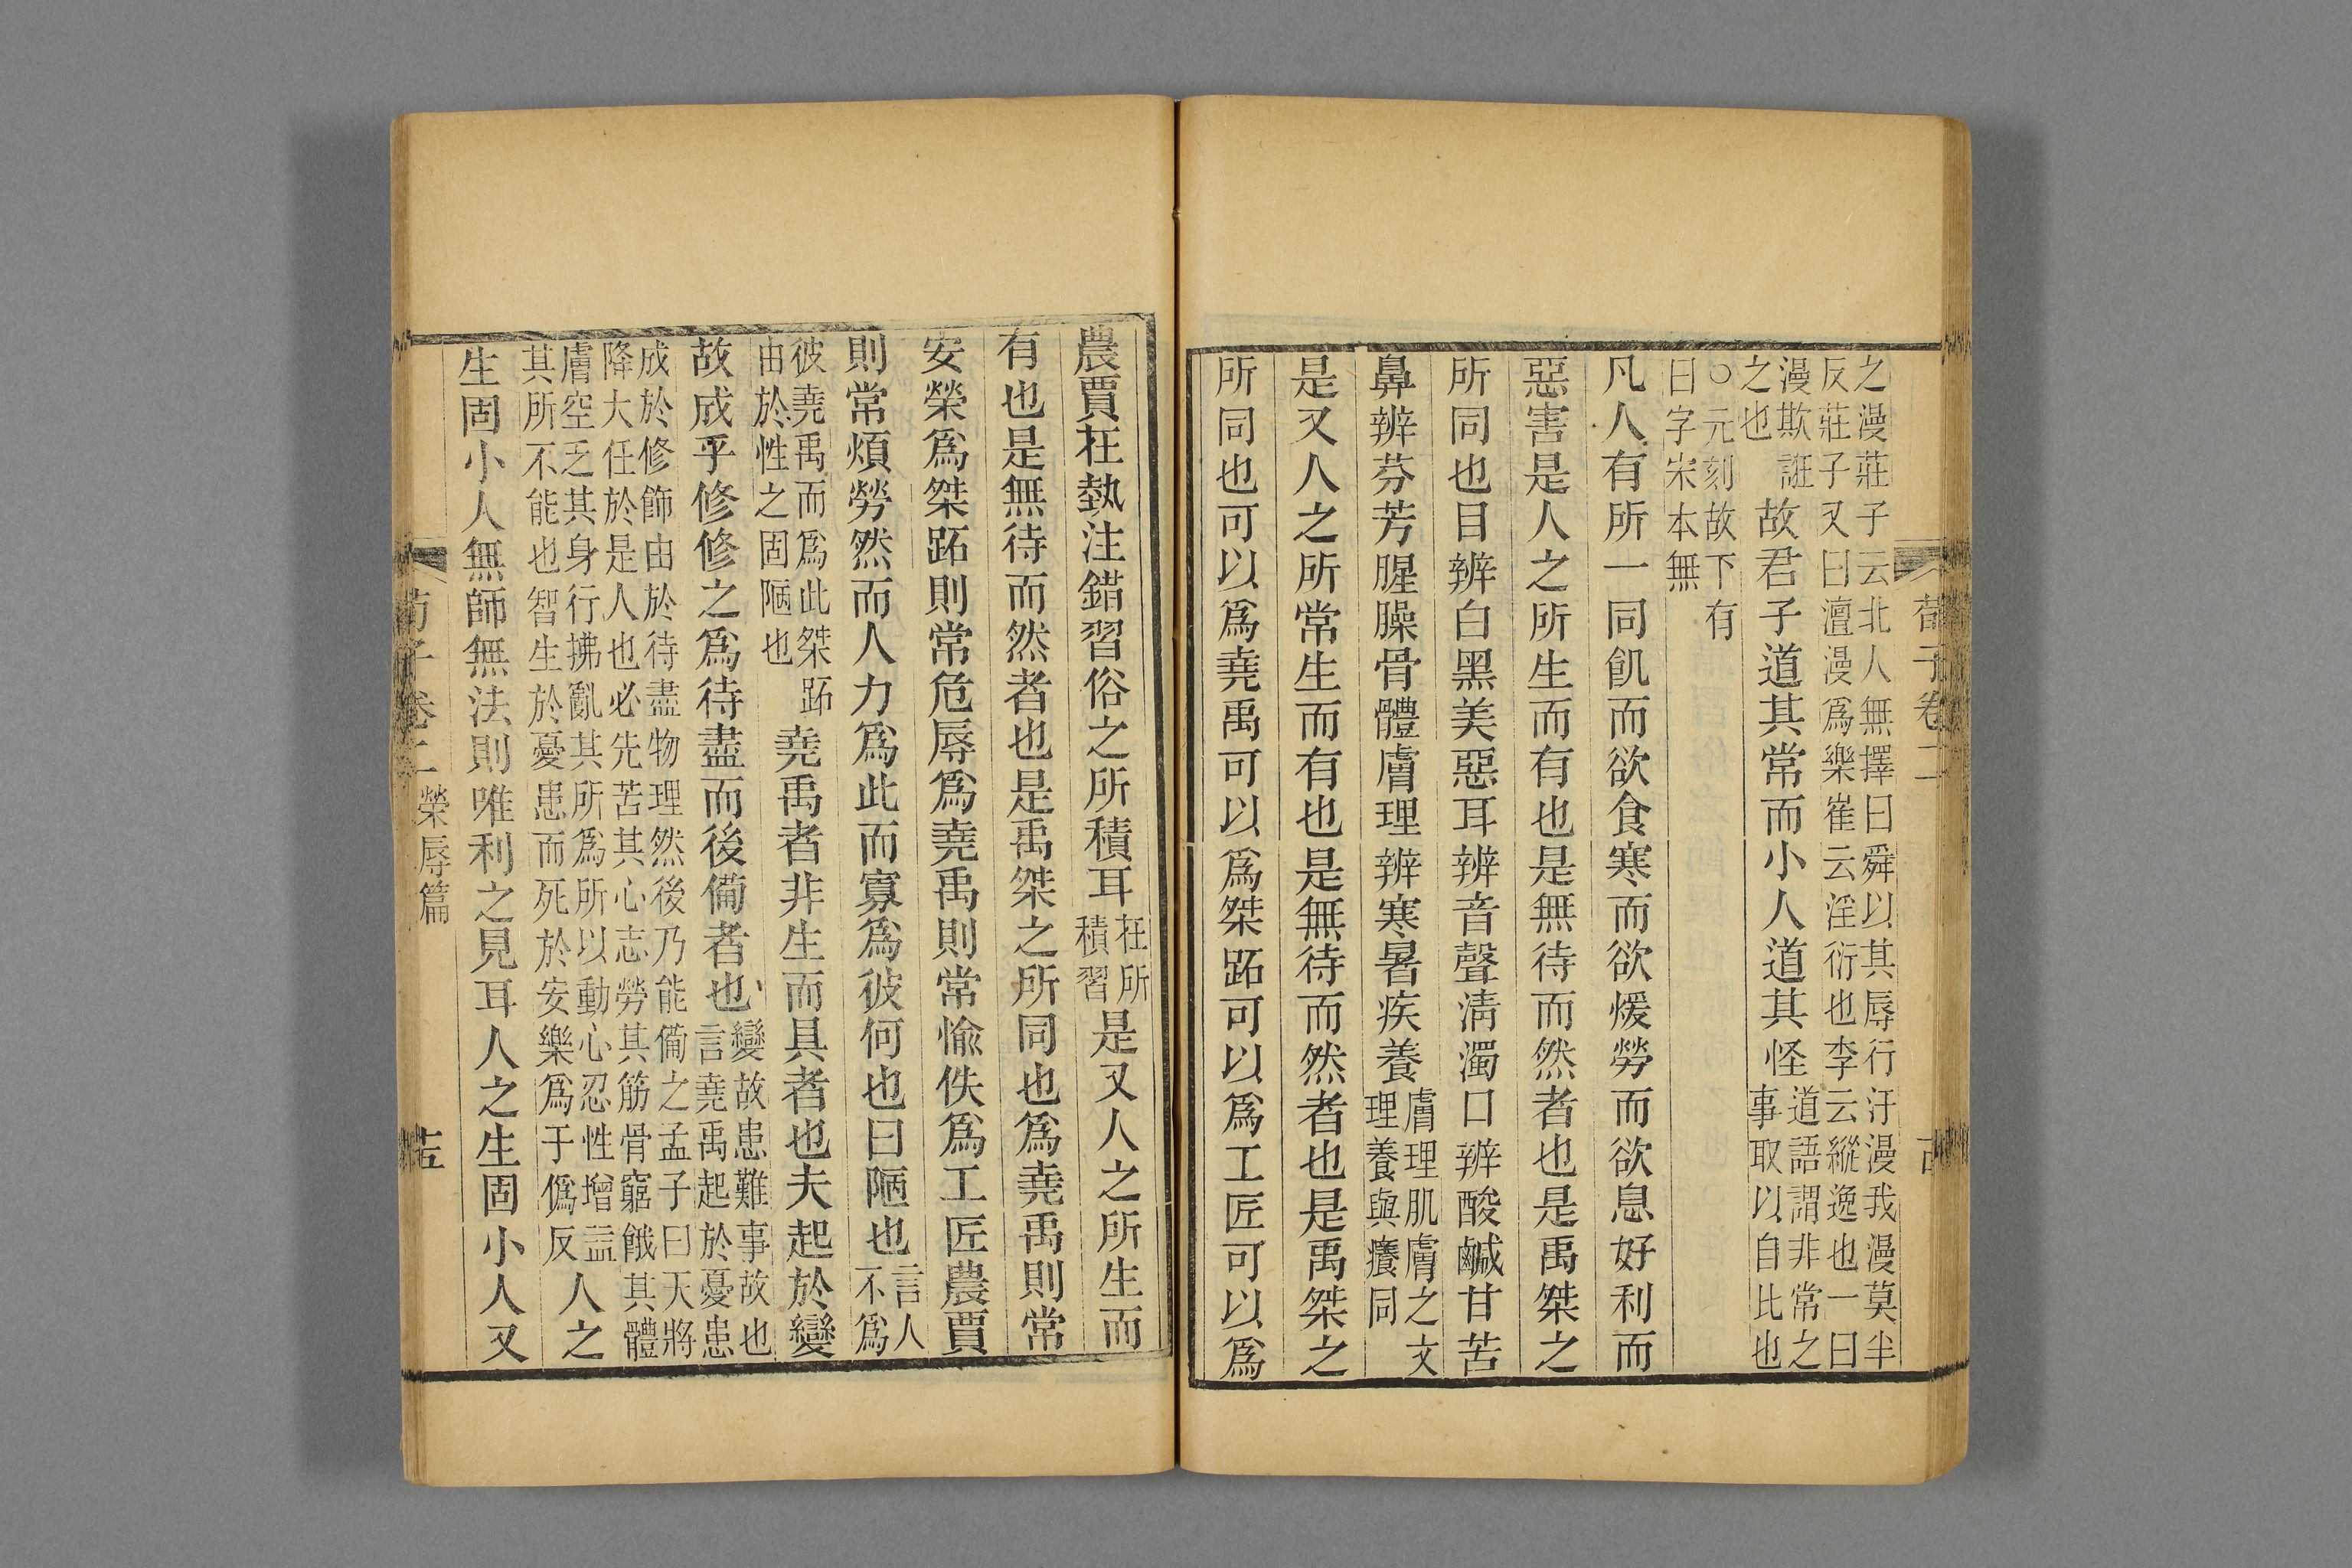 荀子卷二
之漫莊子云北人無擇曰舜以其辱行汙漫我漫莫半
反莊子又曰澶漫爲樂崔云淫衍也李云縱逸也一曰
漫欺誑
之也
故君子道其常而小人道其怪
道語謂非常之
事取以自比也
○元刻故下有
曰字宋本無
凡人有所一同飢而欲食寒而欲煖勞而欲息好利而
惡害是人之所生而有也是無待而然者也是禹桀之
所同也目辨白黑美惡耳辨音聲淸濁口辨酸鹹甘苦
鼻辨芬芳腥臊骨體膚理辨寒暑疾養
膚理肌膚之文
理養與癢同
是又人之所常生而有也是無待而然者也是禹桀之
所同也可以爲堯禹可以爲桀跖可以爲工匠可以爲
農賈在埶注錯習俗之所積耳
在所
積習
是又人之所生而
有也是無待而然者也是禹桀之所同也爲堯禹則常
安榮爲桀跖則常危辱爲堯禹則常愉佚爲工匠農賈
則常煩勞然而人力爲此而寡爲彼何也曰陋也
言人
不爲
彼堯禹而爲此桀跖
由於性之固陋也
堯禹者非生而具者也夫起於變
故成乎修修之爲待盡而後備者也
變故患難事故也
言堯禹起於憂患
成於修飾由於待盡物理然後乃能備之孟子曰天將
降大任於是人也必先苦其心志勞其筋骨窮餓其體
膚空乏其身行拂亂其所爲所以動心忍性增益
其所不能也智生於憂患而死於安樂爲于僞反
人之
生固小人無師無法則唯利之見耳人之生固小人又
荀子卷二
榮辱篇